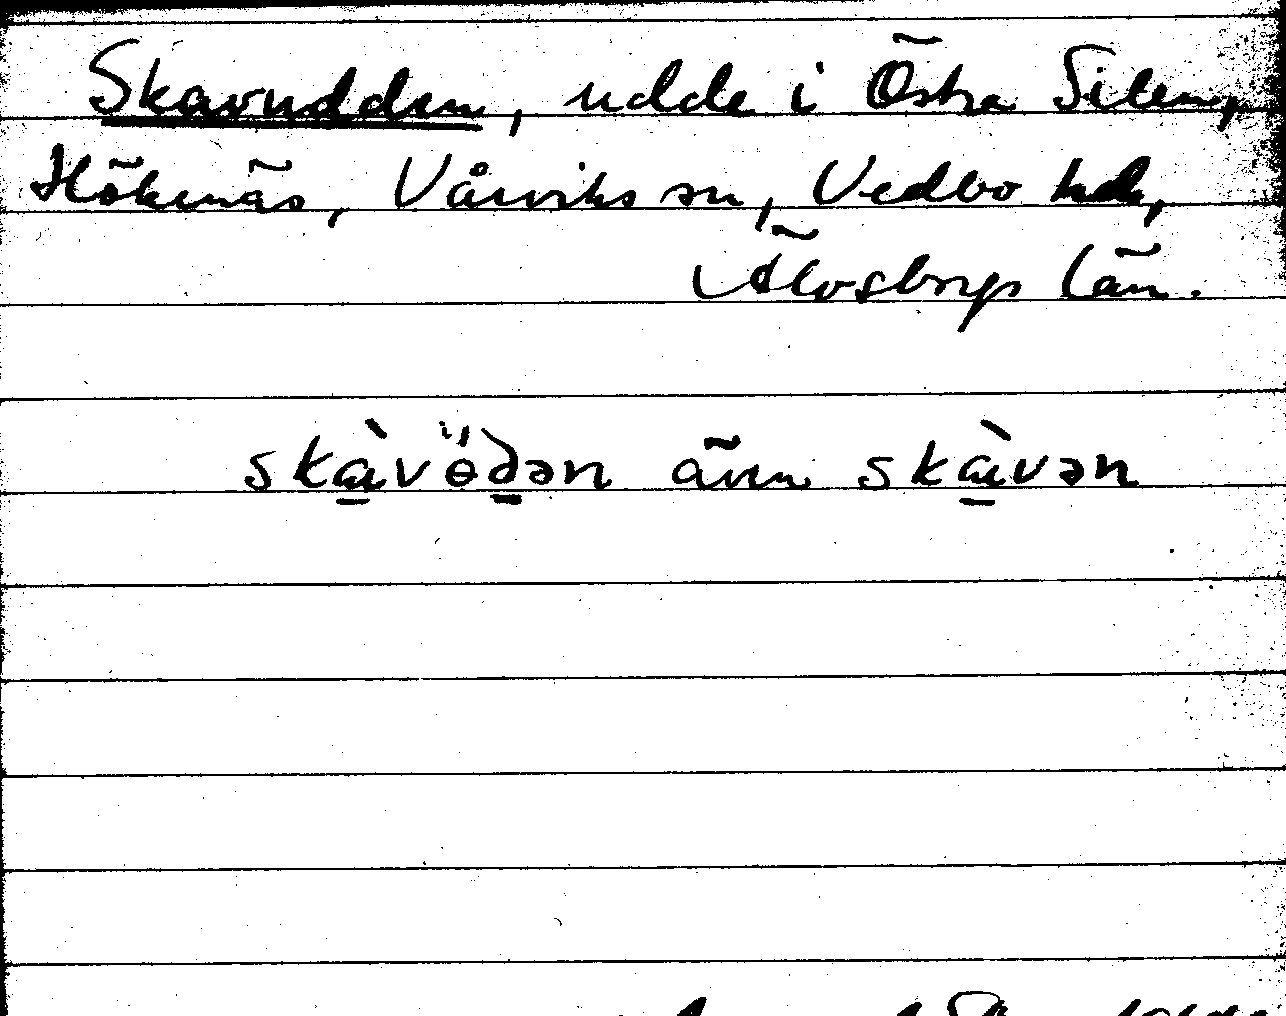 Skavudden, udde i Östra Silen,
Hökenäs, Vårviks sn, Vedbo hd,
Älvsborgs län.
skæ̀vɵ̈dən även skæ̀vən